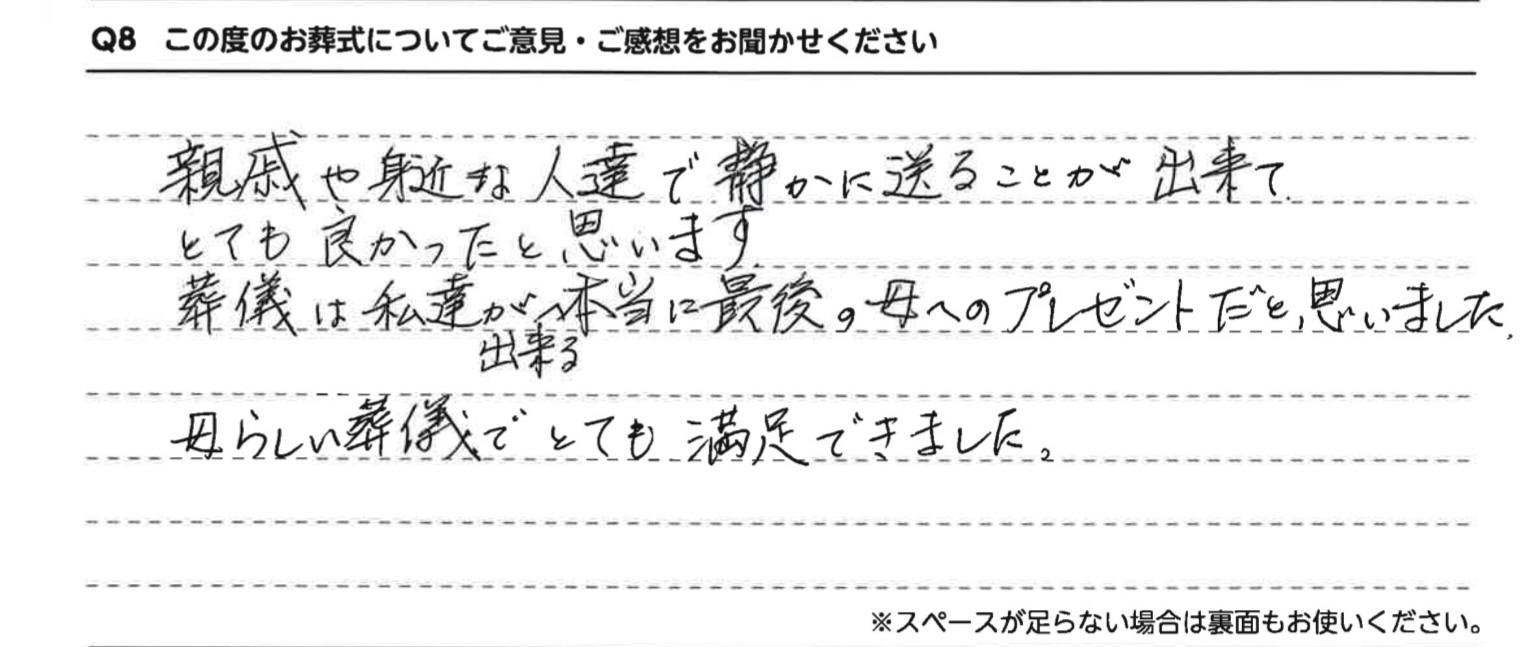 Q8 この度のお葬式についてご意見・ご感想をお聞かせください
親戚や身近な人達で静かに送ることが出来て
とても良かったと思います。
葬儀は私達が出来る本当に最後の母へのプレゼントだと思いました。
母らしい葬儀でとても満足できました。
※スペースが足らない場合は裏面もお使いください。